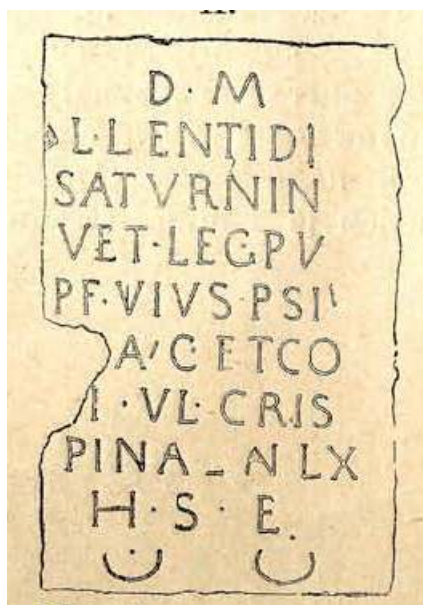 D · M
L · LENTIDI
SATVRNIN
VET · LEG · PV
PF · VIVS · PSI
A C ETCO
I · VL · CRIS
PINA _ AN LX
H · S · E .